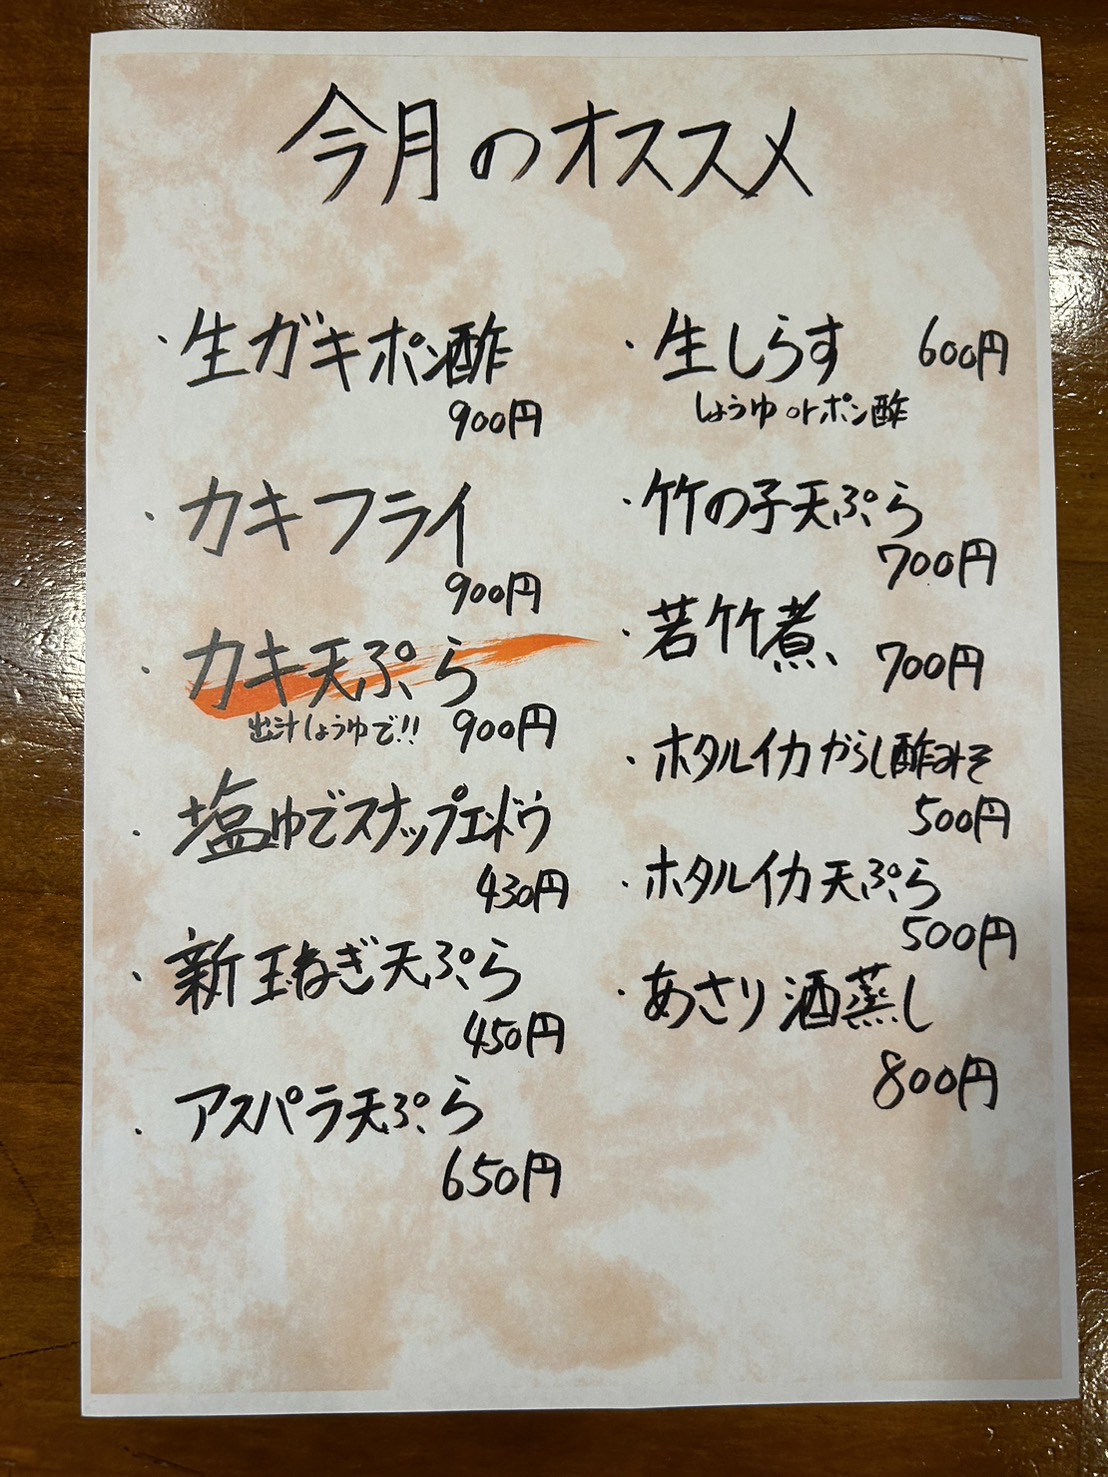 今月のオススメ
・生ガキポン酢
900円
・カキフライ
900円
・カキ天ぷら
出汁しょうゆで!! 900円
・塩ゆでスナップエンドウ
430円
・新玉ねぎ天ぷら
450円
・アスパラ天ぷら
650円
・生しらす 600円
しょうゆorポン酢
・竹の子天ぷら
700円
・若竹煮
700円
・ホタルイカからし酢みそ
500円
・ホタルイカ天ぷら
500円
・あさり酒蒸し
800円